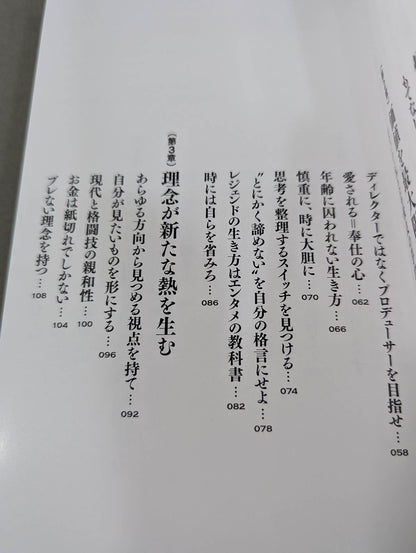 ディレクターではなくプロデューサーを目指せ…058
愛される＝奉仕の心…062
年齢に囚われない生き方…066
慎重に、時に大胆に…070
思考を整理するスイッチを見つける…074
“とにかく諦めない”を自分の格言にせよ…078
レジェンドの生き方はエンタメの教科書…082
時には自らを省みろ…086
〈第3章〉理念が新たな熱を生む
あらゆる方向から見つめる視点を持て…092
自分が見たいものを形にする…096
現代と格闘技の親和性…100
お金は紙切れでしかない…104
ブレない理念を持つ…108